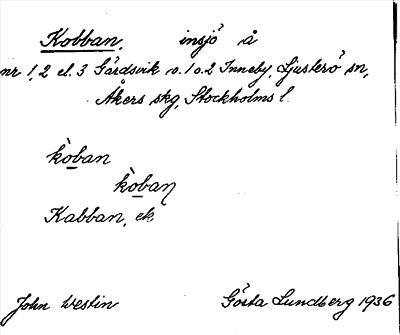 Kobban, insjö å
nr 1, 2 el. 3 Gärdsvik o. 1 o. 2 Inneby, Ljusterö sn,
Åkers skg, Stockholms l.
kòban
kòban
Kabban, ek
John Westin Gösta Lundberg 1936